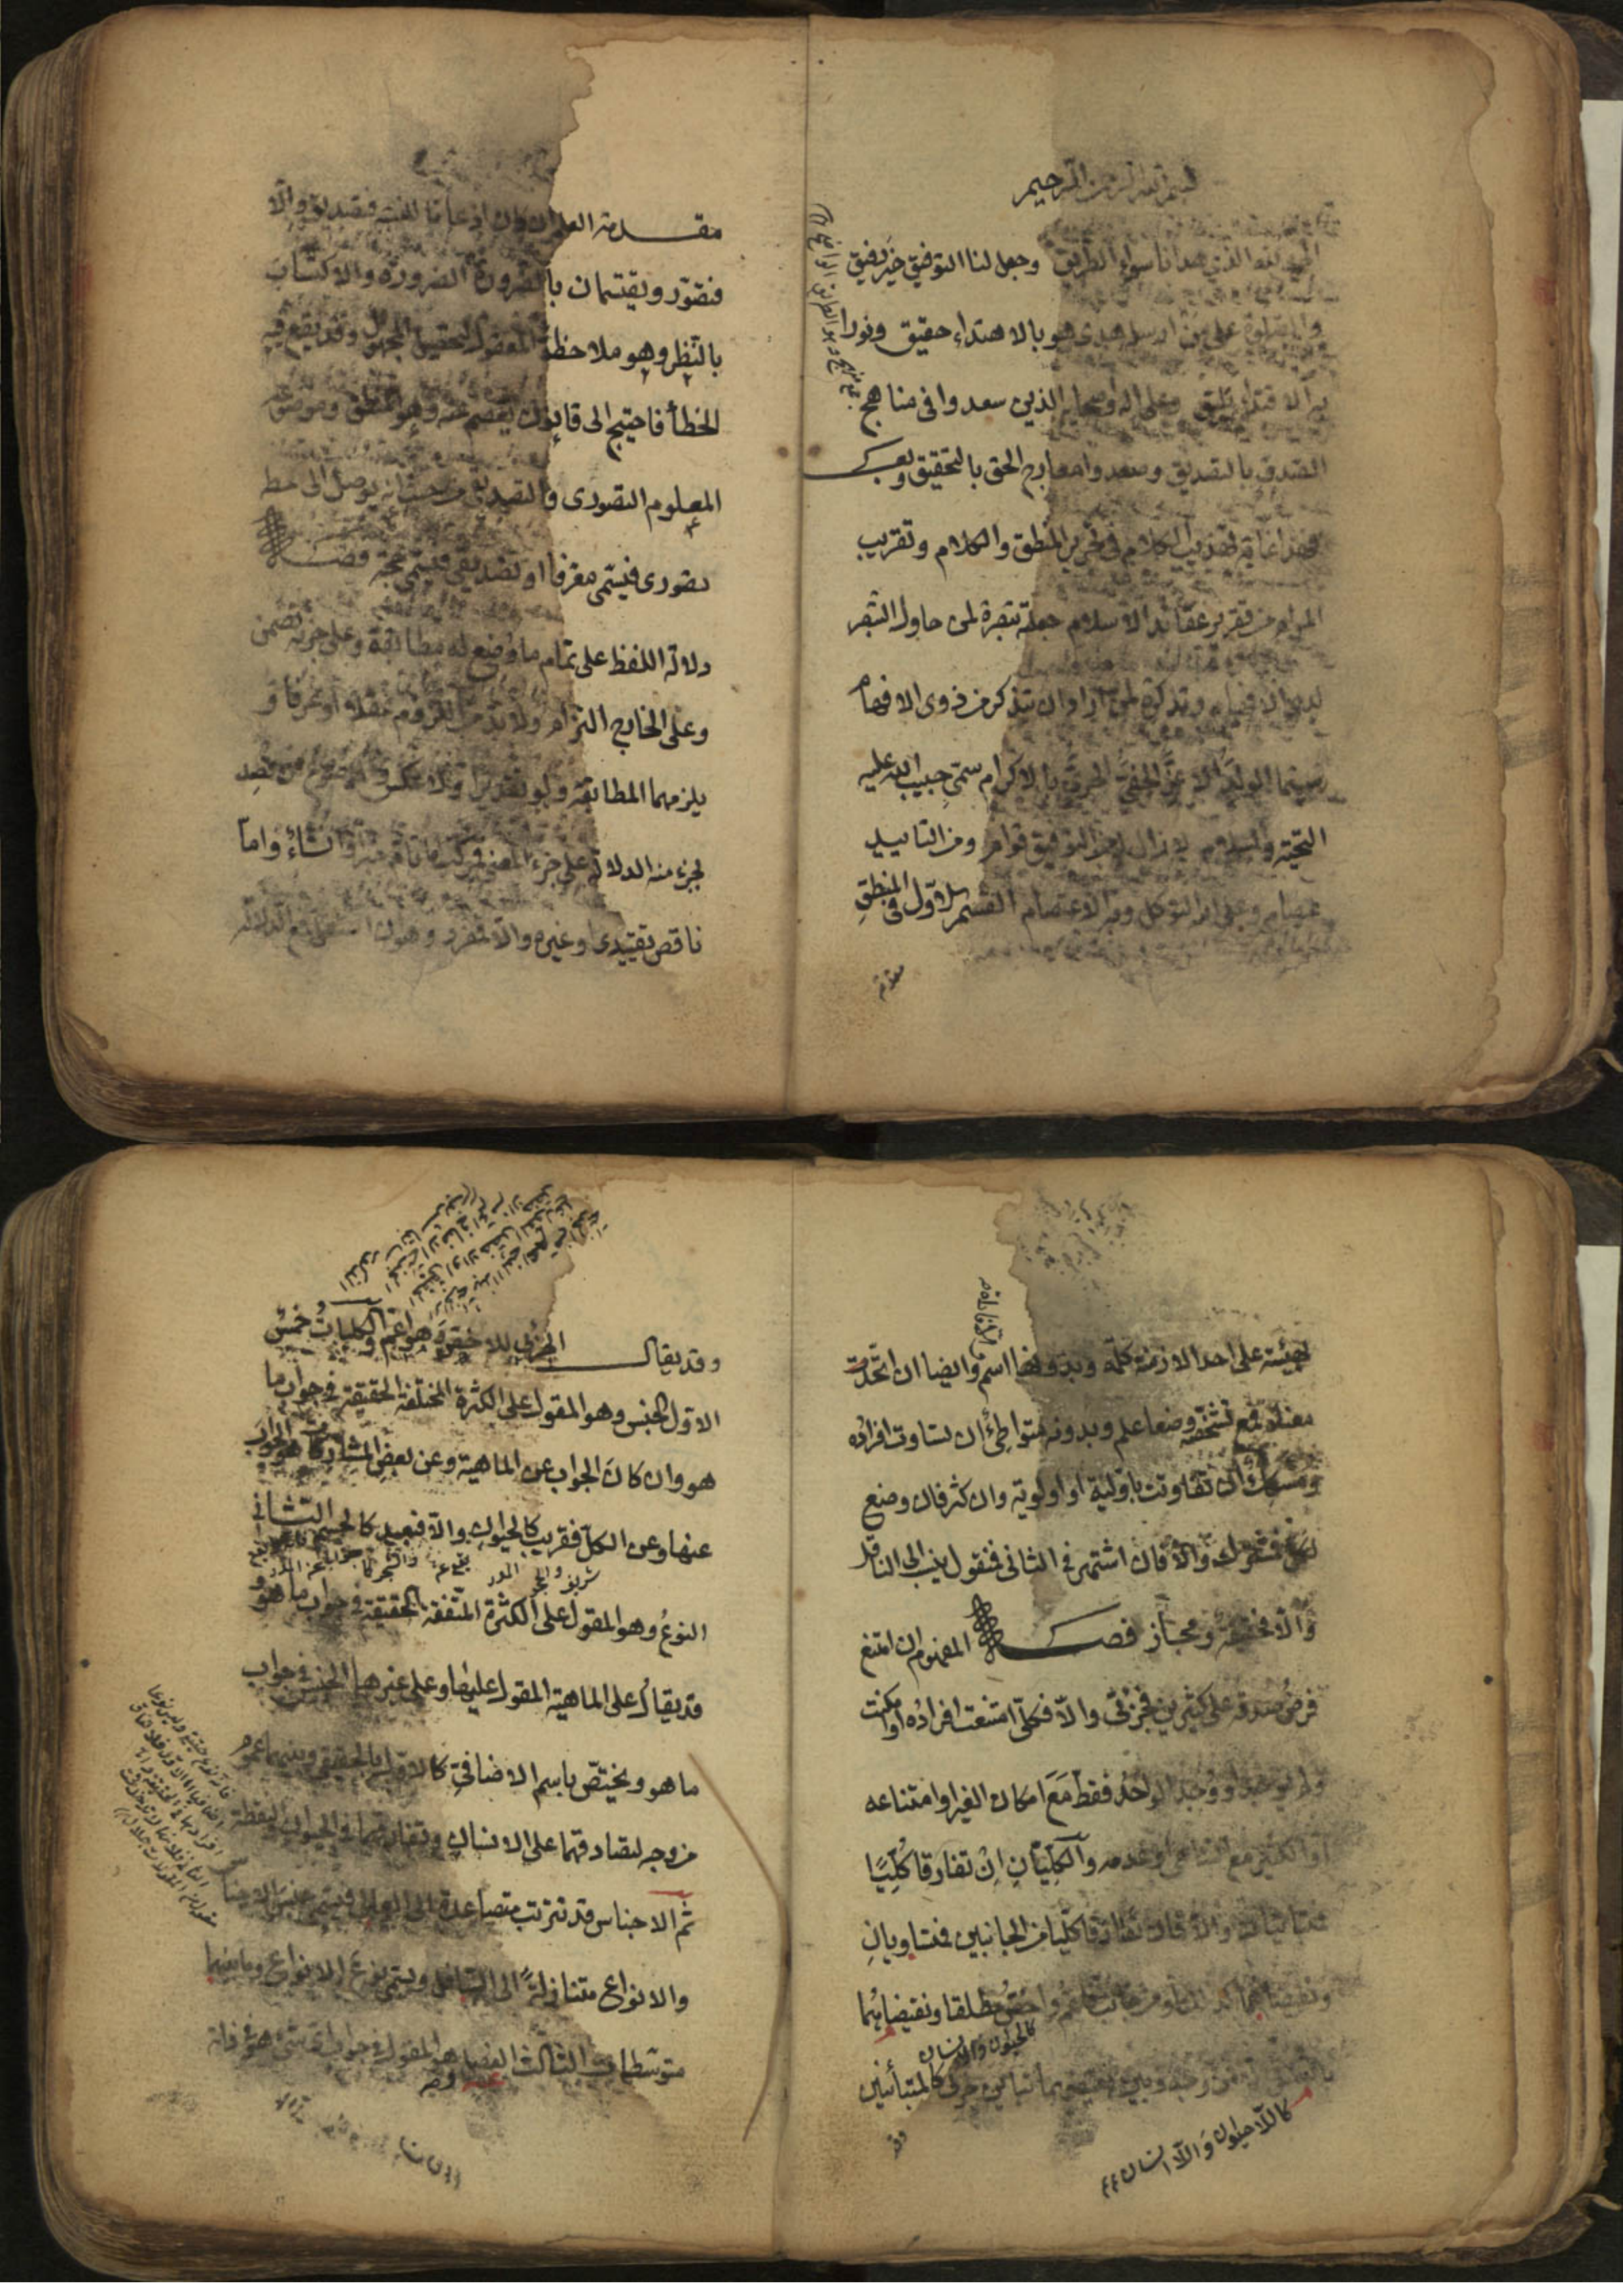 بسم الله الرحمن الرحيم
الحمد لله الذي هدانا سواء الطريق وجعل لنا التوفيق خير رفيق
والصلوة على من ارسله هدى هو بالاهتداء حقيق ونورا
به الاقتداء يليق وعلى اله واصحابه الذين سعدوا في مناهج
الصدق بالتصديق وصعدوا معارج الحق بالتحقيق وبعد
فهذا غاية تهذيب الكلام في تحرير المنطق والكلام وتقريب
المرام من تقرير عقائد الاسلام جعلته تبصرة لمن حاول التبصر
لدى الافهام وتذكرة لمن اراد ان يتذكر من ذوى الافهام
سيما الولد الاعز الحفي الحرى بالاكرام سمي حبيب الله عليه
التحية والسلام لا زال له من التوفيق قوام ومن التاييد
عصام وعلى الله التوكل وبه الاعتصام القسم الاول في المنطق
مقدمه
مقدمة العلم ان كان اذعانا للنسبة فتصديق والا
فتصور ويقتسمان بالضرورة الضرورة والاكتساب
بالنظر وهو ملاحظة المعقول لتحصيل المجهول وقد يقع فيه
الخطأ فاحتيج الى قانون يعصم عنه وهو المنطق وموضوعه
المعلوم التصورى والتصديقى من حيث انه يوصل الى مطلوب
تصورى فيسمى معرفا او تصديقى فيسمى حجة فصل
دلالة اللفظ على تمام ما وضع له مطابقة وعلى جزئه تضمن
وعلى الخارج التزام ولا بد من اللزوم عقلا او عرفا و
يلزمهما المطابقة ولو تقديرا ولا عكس والموضوع ان قصد
بجزء منه الدلالة على جزء المعنى فمركب اما تام خبر او انشاء واما
ناقص تقييدى او غيره والا فمفرد وهو ان استقل فمع الدلالة
بهيئته على احد الازمنة كلمة وبدونها اسم وايضا ان اتحدت
معناه فمع تشخصه وضعا علم وبدونه متواطئ ان تساوت افراده
ومشكك ان تفاوتت باولية او اولوية وان كثر فان وضع
لكل فمشترك والا فان اشتهر في الثانى فمنقول ينسب الى الناقل
والا فحقيقة ومجاز فصل المفهوم ان امتنع
فرض صدقه على كثيرين فجزئى والا فكلى امتنعت افراده او امكنت
ولم يوجد او وجد الواحد فقط مع امكان الغير او امتناعه
او الكثير مع التناهى او عدمه والكليان ان تفارقا كليا
فمتباينان والا فان تصادقا كليا من الجانبين فمتساويان
ونقيضاهما كذلك او من جانب فاعم واخص مطلقا ونقيضاهما
كالحيوان والانسان
بالعكس والا فمن وجه وبين نقيضيهما تباين جزئى كالمتباينين
كاللاحيوان واللاانسان
وقد
وقد يقال الجزئى للاخص وهو اعم والكليات خمس
الاول الجنس وهو المقول على الكثرة المختلفة الحقيقة في جواب ما
هو وان كان الجواب عن الماهية وعن بعض المشاركات هو الجواب
عنها وعن الكل فقريب كالحيوان والا فبعيد كالجسم الثانى
النوع وهو المقول على الكثرة المتفقة الحقيقة في جواب ما هو و
قد يقال على الماهية المقول عليها وعلى غيرها الجنس في جواب
ما هو ويختص باسم الاضافي كالاول بالحقيقى وبينهما عموم
من وجه لتصادقهما على الانسان وتفارقهما في الحيوان والنقطة
ثم الاجناس قد تترتب متصاعدة الى العالى فيسمى جنس الاجناس
والانواع متنازلة الى السافل ويسمى نوع الانواع وما بينهما
متوسطات الثالث الفصل وهو المقول في جواب اى شئ هو في ذاته